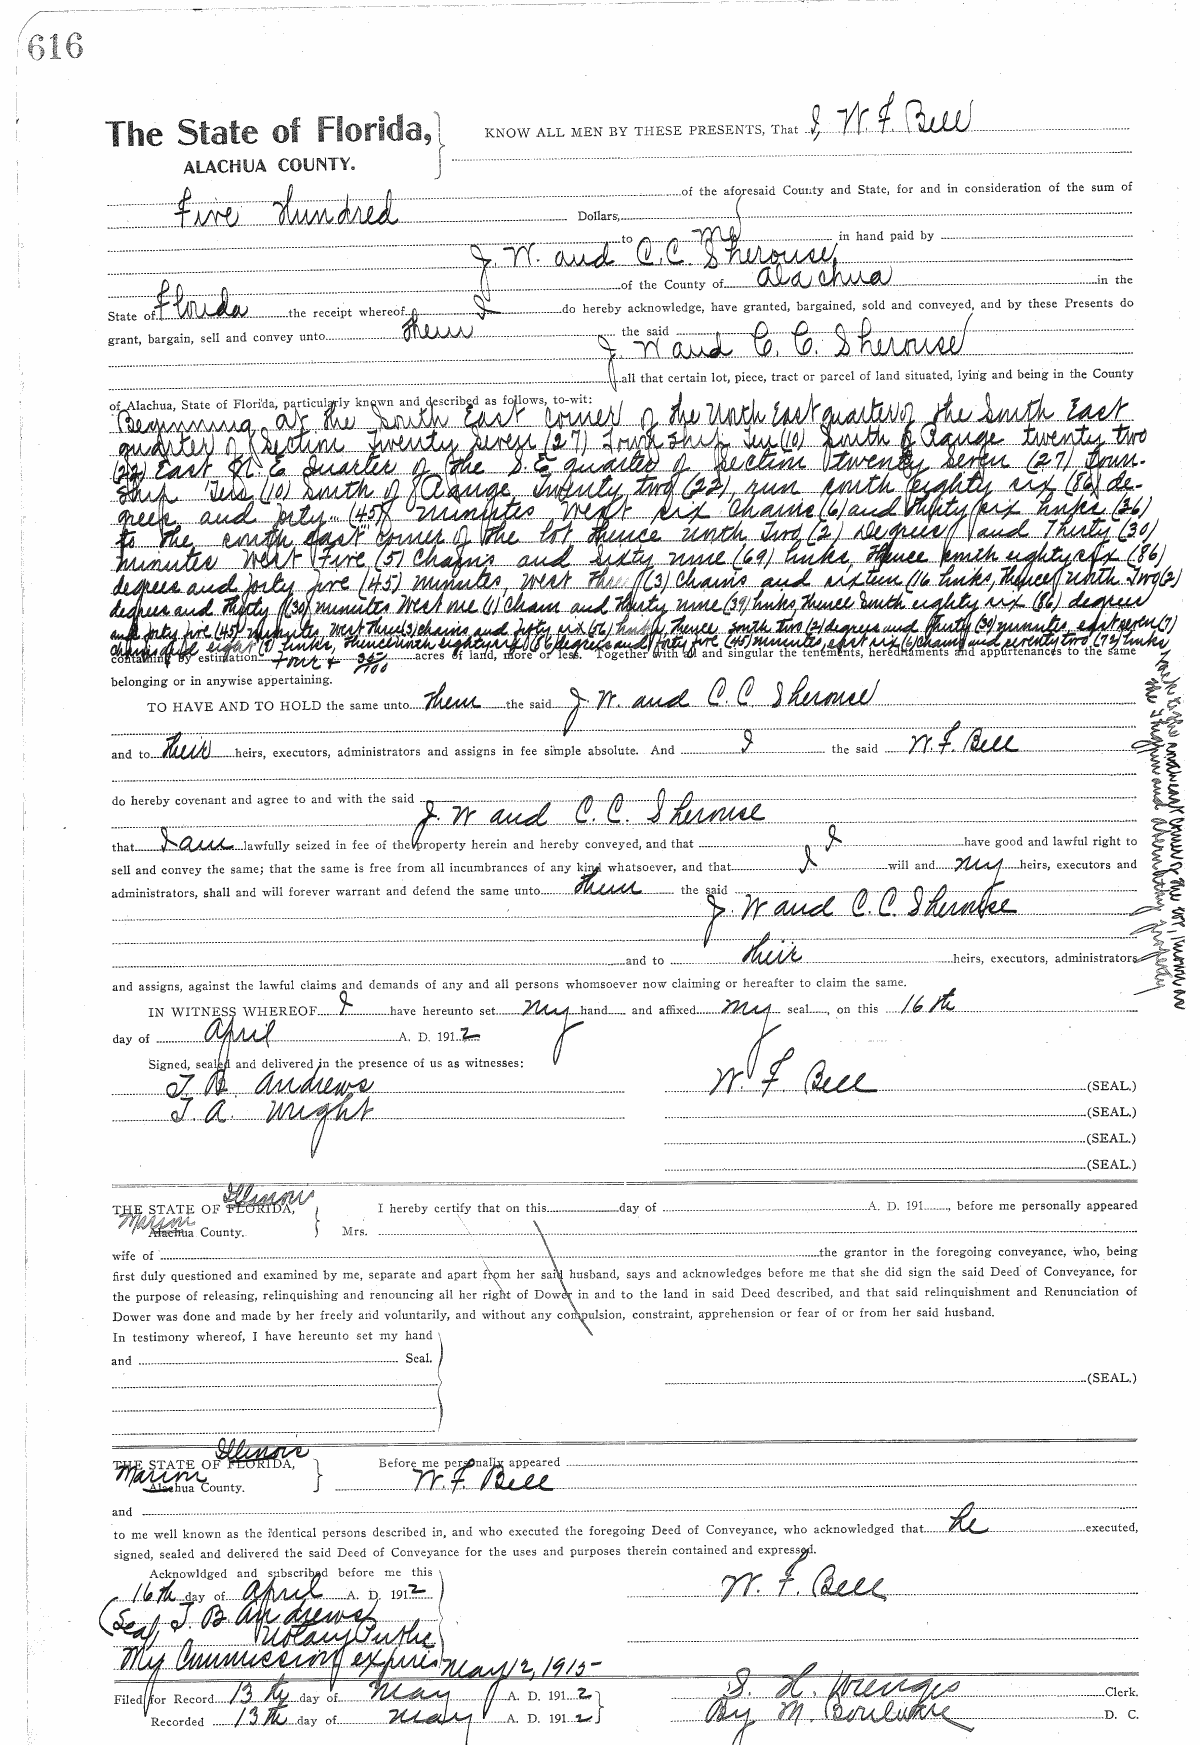 616
The State of Florida,
ALACHUA COUNTY.
KNOW ALL MEN BY THESE PRESENTS, That I, W. F. Bell
of the aforesaid County and State, for and in consideration of the sum of
Five Hundred Dollars,
to me in hand paid by
J. W. and C. C. Sherouse,
of the County of Alachua in the
State of Florida the receipt whereof I do hereby acknowledge, have granted, bargained, sold and conveyed, and by these Presents do
grant, bargain, sell and convey unto them the said
J. W and C. C. Sherouse
all that certain lot, piece, tract or parcel of land situated, lying and being in the County
of Alachua, State of Florida, particularly known and described as follows, to-wit:
Beginning at the South East corner of the North East quarter of the South East
quarter of Section Twenty Seven (27) Township Ten (10) South of Range twenty two
(22) East N. E Quarter of the S. E quarter of Section twenty Seven (27) Town-
ship Ten (10) South of Range Twenty two (22), run south eighty six (86) de-
grees and forty (45) minutes West six chains (6) and thirty six links (36)
to the south east corner of the lot thence North Two (2) Degrees and Thirty (30)
minutes West Five (5) Chains and Sixty nine (69) links, thence south eighty six (86)
degrees and forty five (45) minutes, west three (3) chains and sixteen (16 links, thence north Two (2)
degrees and thirty (30) minutes West one (1) chain and thirty nine (39) links thence South eighty six (86) degrees
and forty five (45) minutes, West three (3) chains and fifty six (56) links, thence South two (2) degrees and thirty (30) minutes, east seven (7)
chains and eight links, thence north eighty six (86 degrees and forty five (45) minutes, east six (6) chains and seventy two (72) links,
containing by estimation four & 30/100 acres of land, more or less. Together with all and singular the tenements, hereditaments and appurtenances to the same
belonging or in anywise appertaining.
TO HAVE AND TO HOLD the same unto them the said J. W. and C. C Sherouse
and to their heirs, executors, administrators and assigns in fee simple absolute. And I the said W. F. Bell
do hereby covenant and agree to and with the said
J. W and C. C. Sherouse
that I am lawfully seized in fee of the property herein and hereby conveyed, and that I have good and lawful right to
sell and convey the same; that the same is free from all incumbrances of any kind whatsoever, and that I will and my heirs, executors and
administrators, shall and will forever warrant and defend the same unto them the said
J. W and C. C. Sherouse
and to their heirs, executors, administrators
and assigns, against the lawful claims and demands of any and all persons whomsoever now claiming or hereafter to claim the same.
IN WITNESS WHEREOF I have hereunto set my hand and affixed my seal, on this 16th
day of April A. D. 1912
Signed, sealed and delivered in the presence of us as witnesses:
J. B. Andrews W. F Bell (SEAL.)
J. A. Wright (SEAL.)
(SEAL.)
(SEAL.)
Illinois
THE STATE OF FLORIDA, I hereby certify that on this day of A. D. 191 , before me personally appeared
Marion Alachua County. Mrs.
wife of the grantor in the foregoing conveyance, who, being
first duly questioned and examined by me, separate and apart from her said husband, says and acknowledges before me that she did sign the said Deed of Conveyance, for
the purpose of releasing, relinquishing and renouncing all her right of Dower in and to the land in said Deed described, and that said relinquishment and Renunciation of
Dower was done and made by her freely and voluntarily, and without any compulsion, constraint, apprehension or fear of or from her said husband.
In testimony whereof, I have hereunto set my hand
and Seal.
(SEAL.)
Illinois
THE STATE OF FLORIDA, Before me personally appeared
Marion Alachua County. W. F. Bell
and
to me well known as the identical persons described in, and who executed the foregoing Deed of Conveyance, who acknowledged that he executed,
signed, sealed and delivered the said Deed of Conveyance for the uses and purposes therein contained and expressed.
Acknowldged and subscribed before me this
16th day of April A. D. 1912 W. F. Bell
(Seal) J. B. Andrews
Notary Public
My Commission expires May 12, 1915
Filed for Record 13th day of May A. D. 1912 S. H. Wienges Clerk.
Recorded 13th day of May A. D. 1912 By M. Boulware D. C.